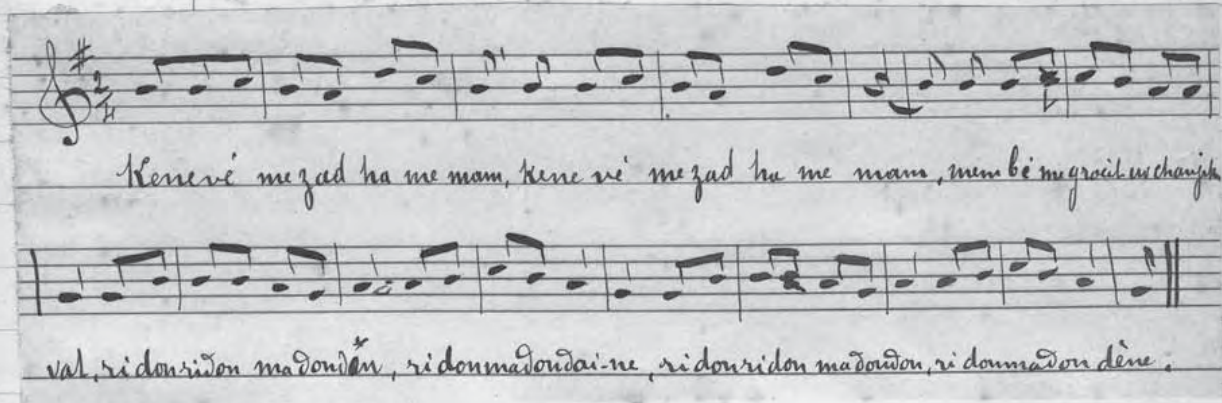 Kenevé me zad ha me mam, kene vé me zad ha me mam, mem bé me groeit
val, ri don ridon ma don don, ri don madondai-ne, ri don ridon ma dondon, ri donmadon dène.